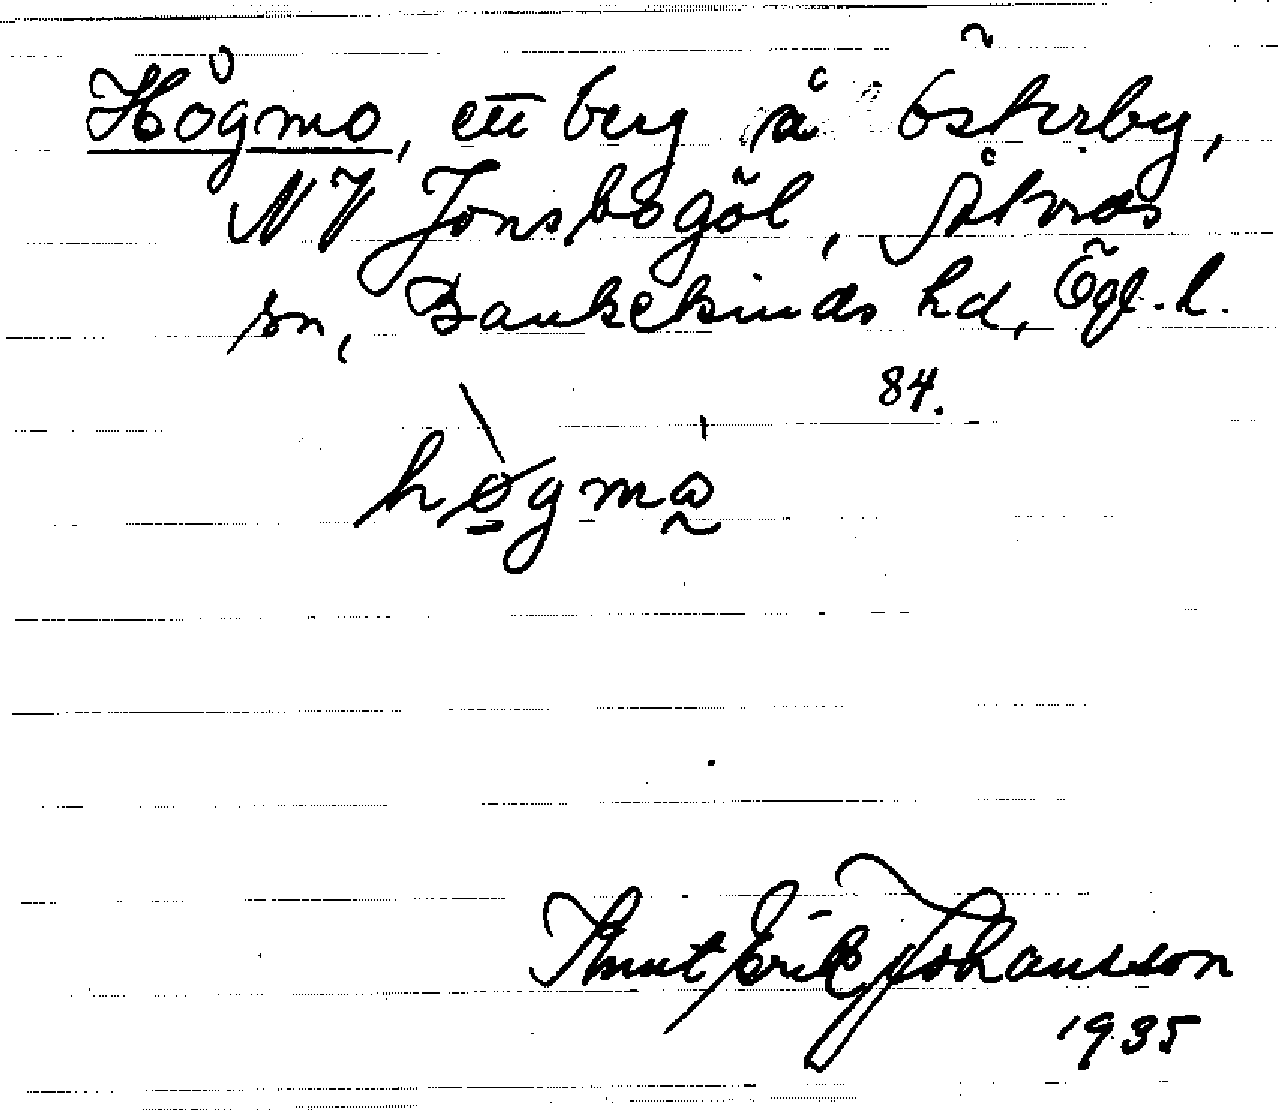 Högmo, ett berg å Österby,
NV Jonsbogöl, Åtvids
sn, Bankekinds hd, Ögl. l.
84.
högmo
Knut Erik Johansson
1935